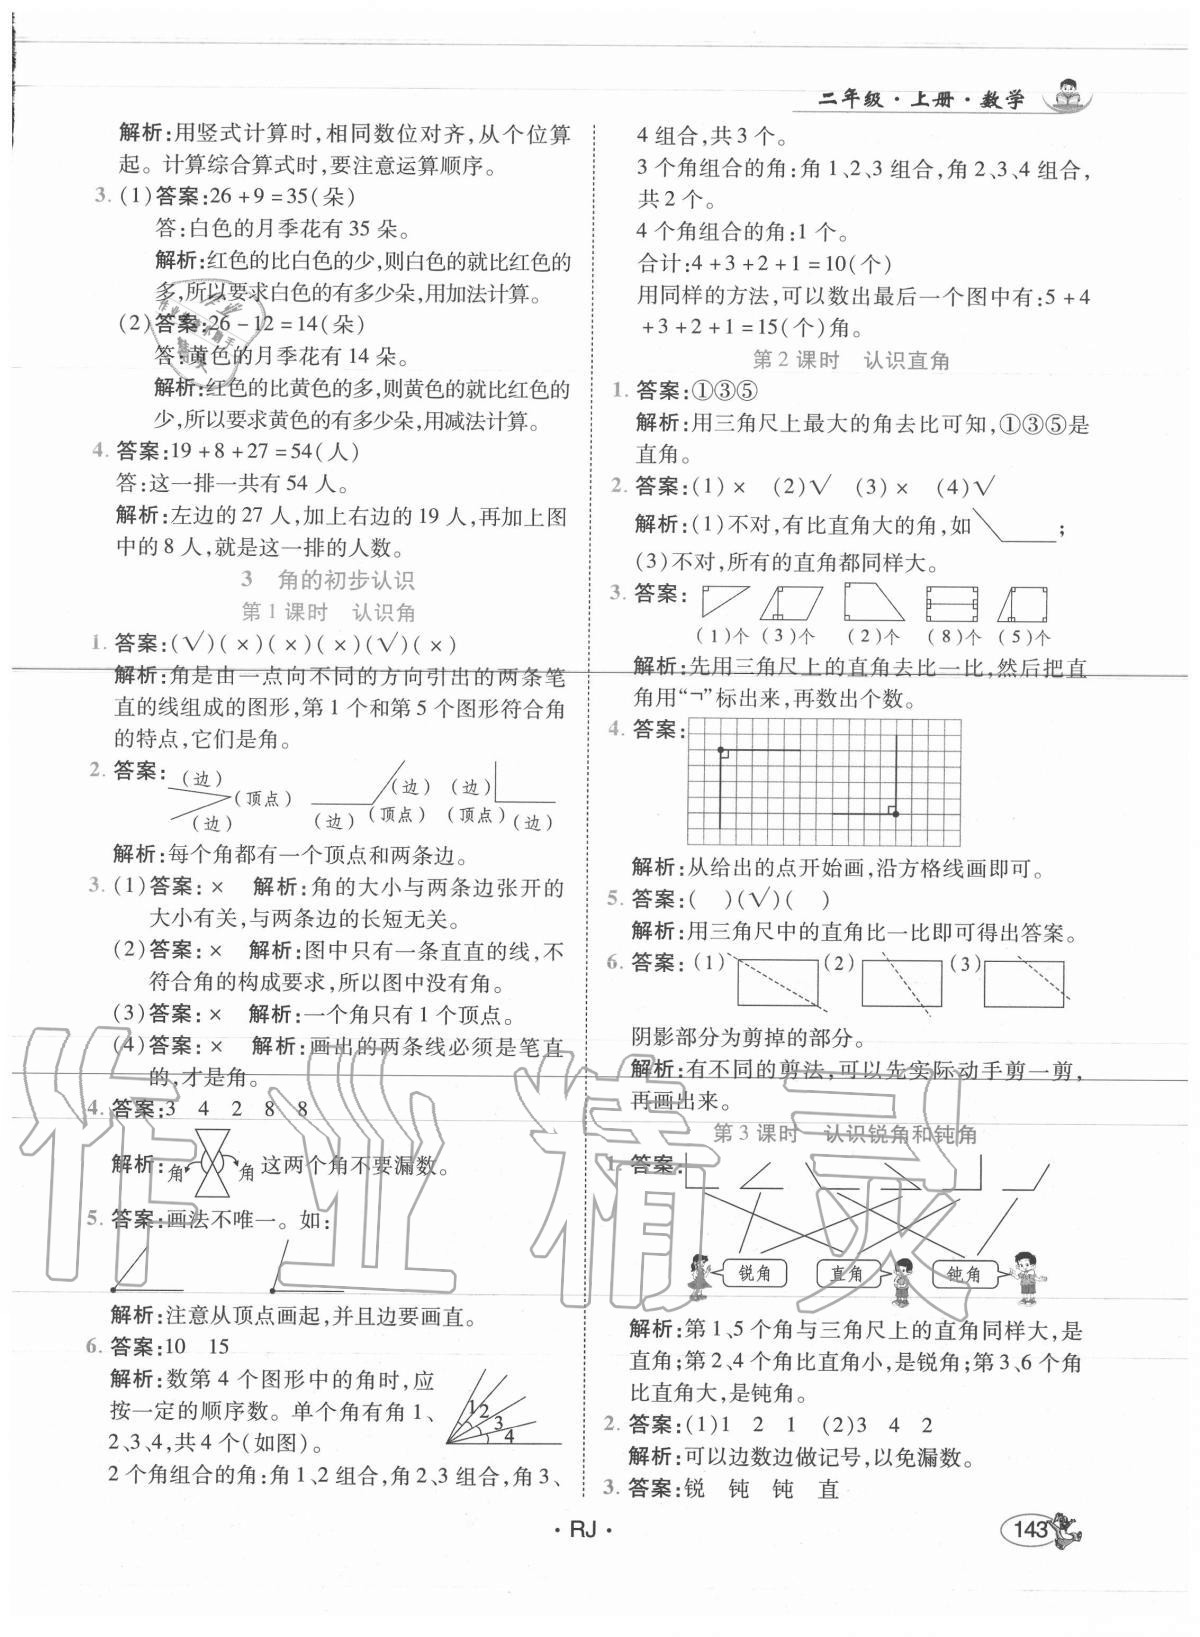 二年级·上册·数学
解析:用竖式计算时,相同数位对齐,从个位算
起。计算综合算式时,要注意运算顺序。
3. (1)答案:26+9=35(朵)
答:白色的月季花有35朵。
解析:红色的比白色的少,则白色的就比红色的
多,所以要求白色的有多少朵,用加法计算。
(2)答案:26-12=14(朵)
答:黄色的月季花有14朵。
解析:红色的比黄色的多,则黄色的就比红色的
少,所以要求黄色的有多少朵,用减法计算。
4. 答案:19+8+27=54(人)
答:这一排一共有54人。
解析:左边的27人,加上右边的19人,再加上图
中的8人,就是这一排的人数。
3 角的初步认识
第1课时 认识角
1. 答案:(√)(×)(×)(×)(√)(×)
解析:角是由一点向不同的方向引出的两条笔
直的线组成的图形,第1个和第5个图形符合角
的特点,它们是角。
2. 答案:
(边) (顶点) (边)
(边) (边) (顶点)
(边) (顶点) (边)
解析:每个角都有一个顶点和两条边。
3. (1)答案:× 解析:角的大小与两条边张开的
大小有关,与两条边的长短无关。
(2)答案:× 解析:图中只有一条直直的线,不
符合角的构成要求,所以图中没有角。
(3)答案:× 解析:一个角只有1个顶点。
(4)答案:× 解析:画出的两条线必须是笔直
的,才是角。
4. 答案:3 4 2 8 8
解析:角 角 这两个角不要漏数。
5. 答案:画法不唯一。如:
解析:注意从顶点画起,并且边要画直。
6. 答案:10 15
解析:数第4个图形中的角时,应
按一定的顺序数。单个角有角1、
2、3、4,共4个(如图)。
1 2 3 4
2个角组合的角:角1、2组合,角2、3组合,角3、
4组合,共3个。
3个角组合的角:角1、2、3组合,角2、3、4组合,
共2个。
4个角组合的角:1个。
合计:4+3+2+1=10(个)
用同样的方法,可以数出最后一个图中有:5+4
+3+2+1=15(个)角。
第2课时 认识直角
1. 答案:①③⑤
解析:用三角尺上最大的角去比可知,①③⑤是
直角。
2. 答案:(1)× (2)√ (3)× (4)√
解析:(1)不对,有比直角大的角,如 ;
(3)不对,所有的直角都同样大。
3. 答案:
(1)个 (3)个 (2)个 (8)个 (5)个
解析:先用三角尺上的直角去比一比,然后把直
角用“¬”标出来,再数出个数。
4. 答案:
解析:从给出的点开始画,沿方格线画即可。
5. 答案:( )(√)( )
解析:用三角尺中的直角比一比即可得出答案。
6. 答案:(1) (2) (3)
阴影部分为剪掉的部分。
解析:有不同的剪法,可以先实际动手剪一剪,
再画出来。
第3课时 认识锐角和钝角
1. 答案:
锐角 直角 钝角
解析:第1、5个角与三角尺上的直角同样大,是
直角;第2、4个角比直角小,是锐角;第3、6个角
比直角大,是钝角。
2. 答案:(1)1 2 1 (2)3 4 2
解析:可以边数边做记号,以免漏数。
3. 答案:锐 钝 钝 直
·RJ·
143
作业精灵